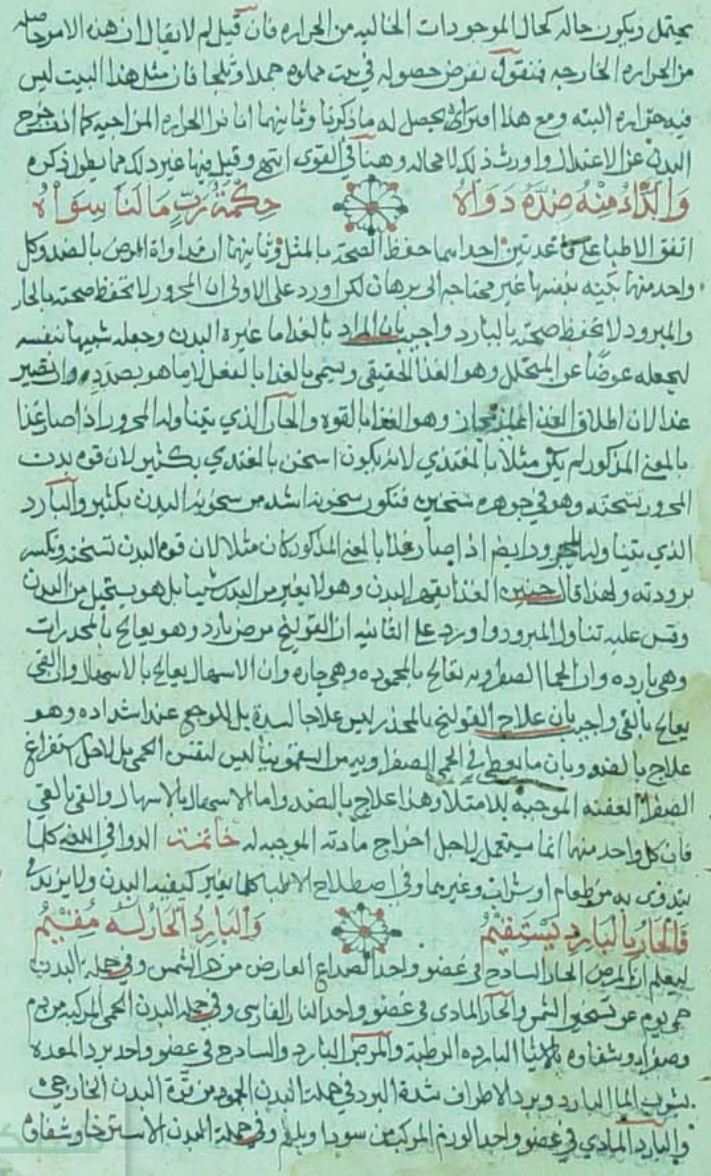 يحتمل ويكون حاله كحال الموجودات الخاليه من الحراره فان قيل لم لا يقال ان هذه الامور حاصله
من الحراره الخارجه فنقول نفرض حصوله في بيت مملوه جمدا وثلجا فان مثل هذا البيت ليس
فيه حراره البته ومع هذا يحصل له ما ذكرنا وثانيهما انا نرا الحراره المزاجيه كلما
البدن عن الاعتدال واورث ذلك لا محاله وهنا في القوى انتهى وقيل فيها غير ذلك مما يطول ذكره
وَالدَّاءُ مِنْهُ ضِدُّهُ دَوَاهُ حِكْمَةُ رَبٍّ مَا لَنَا سِوَاهُ
اتفق الاطبا على قاعدتين احداهما حفظ الصحة بالمثل وثانيهما ان مداواة المرض بالضد وكل
واحد منهما بينه بنفسها غير محتاجه الى برهان لكن اورد على الاولى ان المحرور لا تحفظ صحته بالحار
والمبرود لا تحفظ صحته بالبارد واجيب بان المراد بالغذا ما غيره البدن وجعله شبيها بنفسه
ليجعله عوضا عن المتحلل وهو الغذا الحقيقي وسمي بالغذا بالفعل لا ما هو بصدد ان يصير
غذا لان اطلاق الغذا مجاز وهو الغذا بالقوه والحار الذي يتناوله المحرور اذا صار غذا
بالمعنى المذكور لم يكن مثلا بالمغتذي لانه يكون اسخن بالمغتذي بكثير لان قوه بدن
المحرور تسخنه وهو في جوهره سخين فتكون سخونته اشد من سخونة البدن بكثير والبارد
الذي يتناوله المحرور ايضا اذا صار غذا بالمعنى المذكور كان مثلا لان قوه البدن تسخنه وتكسر
برودته ولهذا قال حنين الغذا يقهره البدن وهو لا يغير من البدن شيا بل هو يستحيل من البدن
وقس عليه تناول المبرود واورد على الثانيه ان القولنج مرض بارد وهو يعالج بالمخدرات
وهي بارده وان الحما الصفراويه تعالج بالمحموده وهي حاره وان الاسهال يعالج بالاسهال وان القي
يعالج بالقي واجيب بان علاج القولنج بالمخدر ليس علاجا لسدة بل للوجع عند اشتداده وهو
علاج بالضد وبان ما يعطى في الحمى الصفراويه من السقمونيا ليس لنفس الحمى بل لاجل استفراغ
الصفرا العفنه الموجبة للامتلا وهذا علاج بالضد واما الاسهال بالاسهال والقي بالقي
فان كل واحد منهما انما يستعمل لاجل اخراج مادته الموجبه له خاتمة الدوا في اللغه كلما
يتدوى به من طعام او شراب وغيرهما وفي اصطلاح الاطبا كلما يغير كيفية البدن ولا يزيد في
فَالحَارُ بِالبَارِدِ يَسْتَقِيمُ وَالبَارِدِ الحَارُ لَهُ مُقِيمُ
ليعلم ان المرض الحار الساذج في عضو واحد الصداع العارض من حر الشمس وفي جملة البدن
حمى يوم عن تسخين الشمس والحار المادي في عضو واحد النار الفارسي وفي جملة البدن الحمى المركبه من دم
وصفرا وشفاوه بالاشيا البارده الرطبة والمرض البارد والساذج في عضو واحد برد المعده
بشرب الما البارد وبرد الاطراف شدة البرد في جملة البدن الجمود من قرة البدن الخارجي
والبارد المادي في عضو واحد الورم المركب من سودا وبلغم وفي جملة البدن الاسترخا وشفاوه